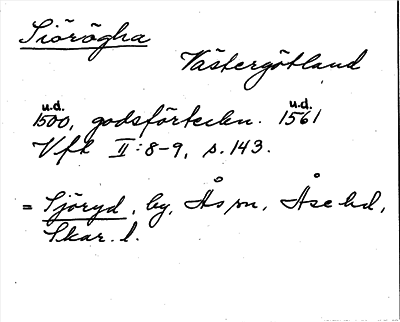 Siörögha
Västergötland
u.d. u.d.
1500, godsförteckn. 1561
Vft II:8-9, s. 143.
= Sjöryd, by, Ås sn, Åse hd,
Skar. l.